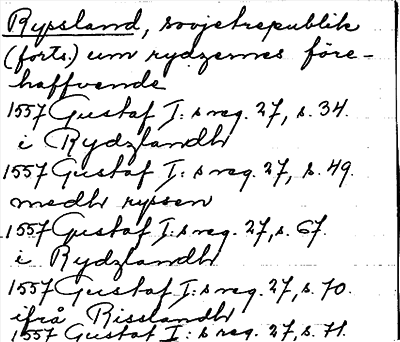 Rypsland, sovjetrepublik
(forts.) um rydzernes före-
haffvende
1557 Gustaf I:s reg. 27, s. 34.
i Rydzlandh
1557 Gustaf I:s reg. 27, s. 49.
medh rypsen
1557 Gustaf I:s reg. 27, s. 67.
i Rydzlandh
1557 Gustaf I:s reg. 27, s. 70.
ifrå Risslandh
1557 Gustaf I:s reg. 27, s. 71.